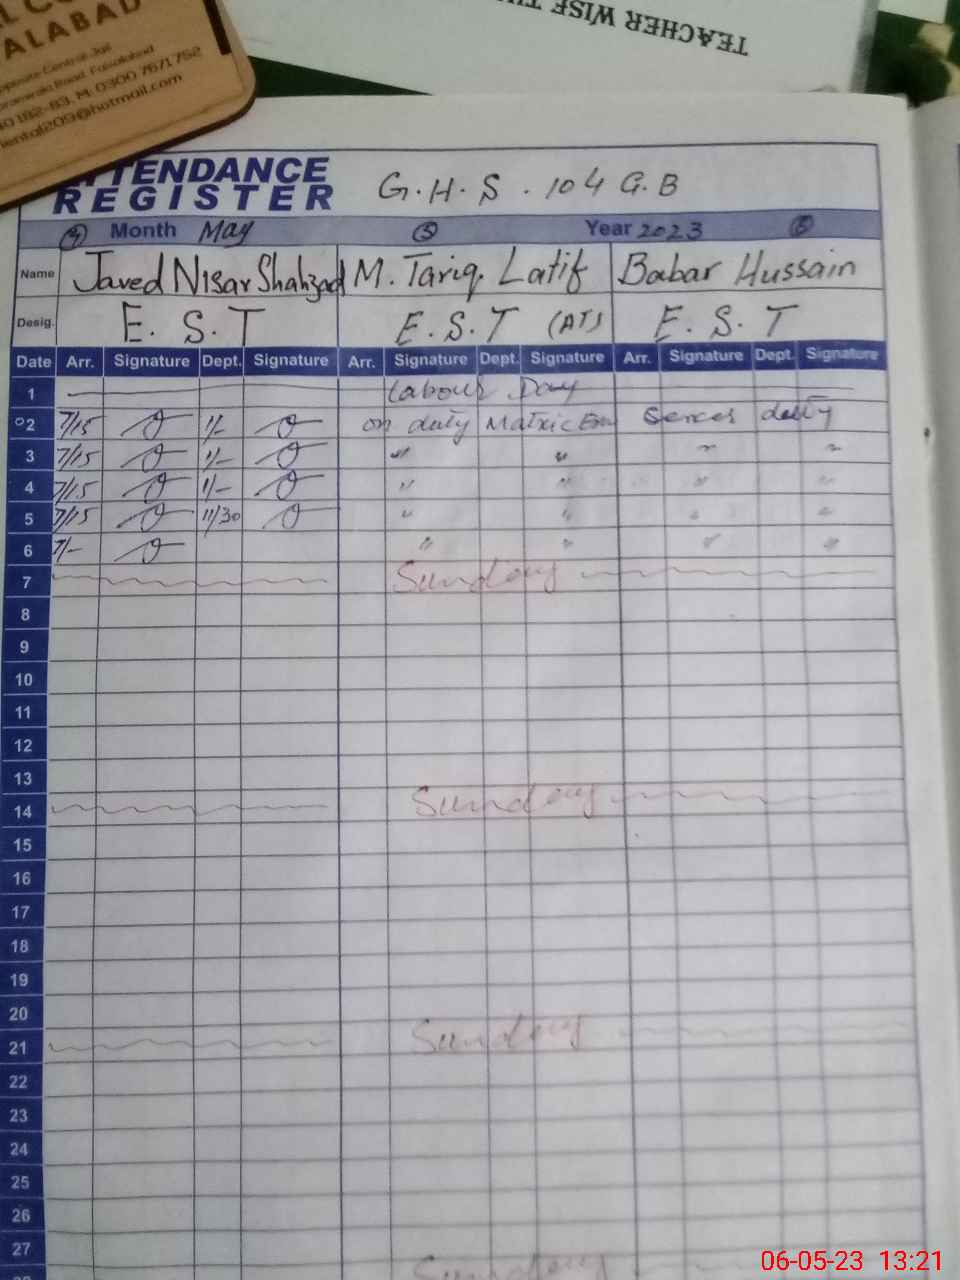 ALABAD
Opposite Central Jail
Road, Faisalabad
182-83, M: 0300 7671752
iental209@hotmail.com
TEACHER WISE
ATTENDANCE
REGISTER
G.H.S. 104 G.B
4 Month May 5 Year 2023
Name Javed Nisar Shahzad M. Tariq Latif Babar Hussain
Desig. E.S.T E.S.T (AT) E.S.T
Date Arr. Signature Dept. Signature Arr. Signature Dept. Signature Arr. Signature Dept. Signature
1 Labour Day
2 7/15 1/- on duty Matric Exm Sences duty
3 7/15 1/- " " " "
4 7/15 1/- " " " "
5 7/15 11/30 " " " "
6 7/- " " " "
7 Sunday
8
9
10
11
12
13
14 Sunday
15
16
17
18
19
20
21 Sunday
22
23
24
25
26
27
28 Sunday
06-05-23 13:21